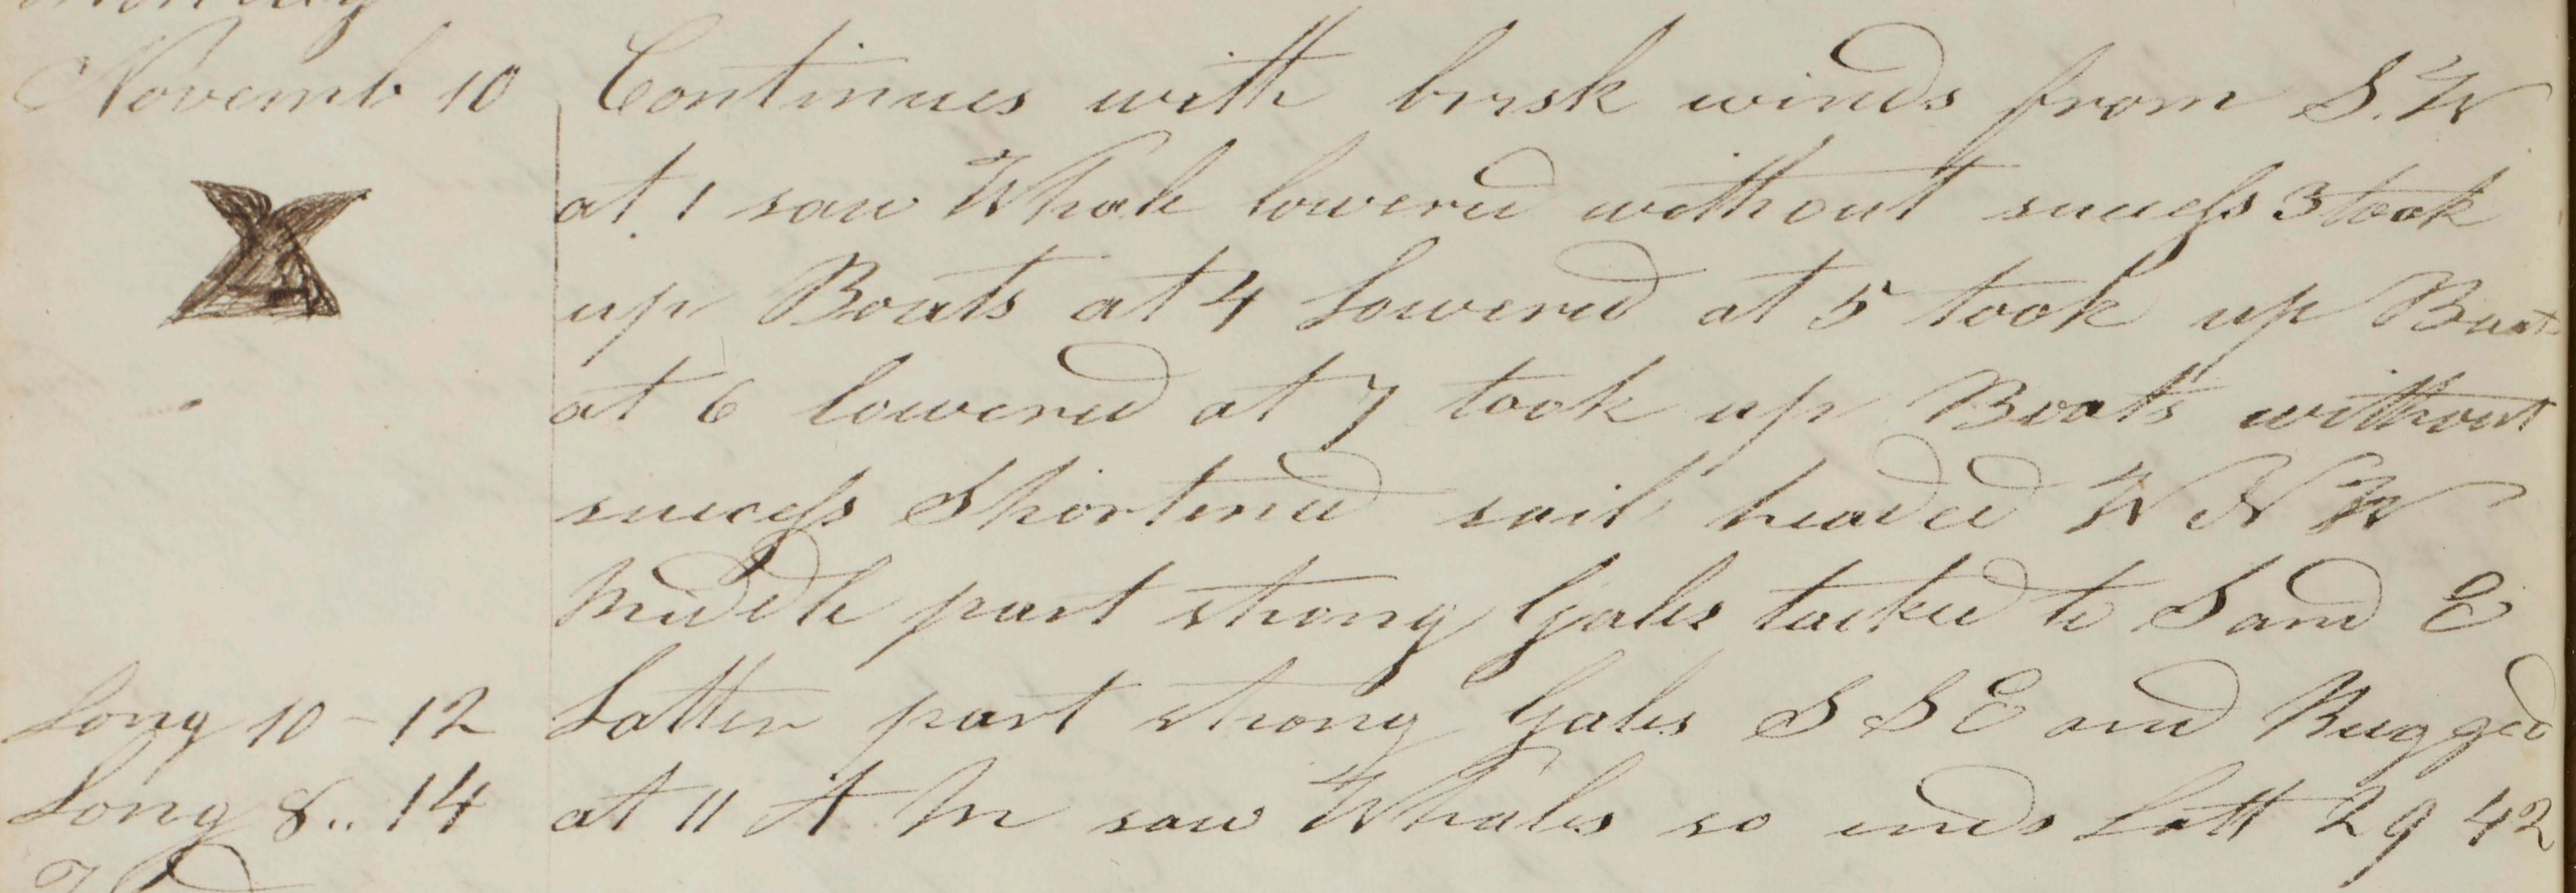 Novemb 10 Continues with brisk winds from S.W
at 1 saw Whale lowered without success 3 took
up Boats at 4 Lowered at 5 took up Boat
at 6 lowered at 7 took up Boats without
success Shortened sail headed W N W
Middle part strong Gales tacked to S and E
Long 10-12 Latter part strong Gales S S E and Rugged
Long 8..14 at 11 A M saw Whales so ends Latt 29 42